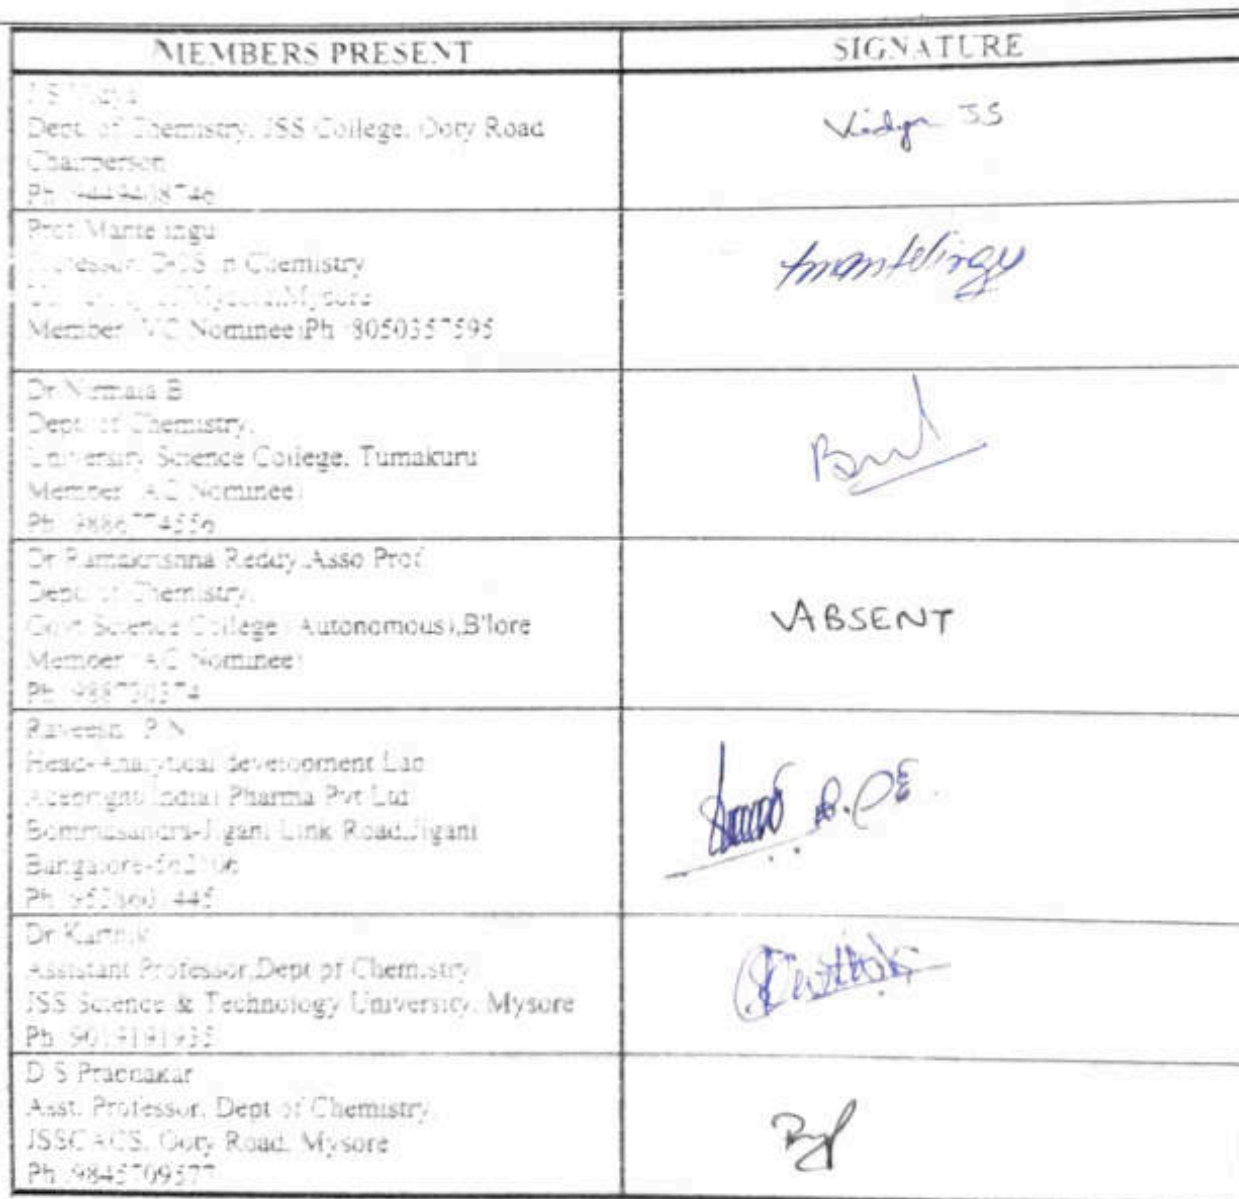 MEMBERS PRESENT
SIGNATURE
Dept. of Chemistry, JSS College, Ooty Road
Chairperson
Ph 9449408746
Vidya JS
Prof Mantelingu
Professor DOS in Chemistry
Mysore
Member VC Nominee Ph 8050357595
Mantelingu
Dr Nirmala B
Dept. of Chemistry,
University Science College, Tumakuru
Member (AC Nominee)
Ph 9886774556
Dr Ramakrishna Reddy, Asso Prof
Dept. of Chemistry,
Govt Science College (Autonomous), B'lore
Member (AC Nominee)
Ph
ABSENT
Raveesh P N
Head-Analytical development Lab
(India) Pharma Pvt Ltd
Bommasandra-Jigani Link Road, Jigani
Bangalore-562106
Ph
Dr Karthik
Assistant Professor, Dept of Chemistry
JSS Science & Technology University, Mysore
Ph 9019191935
D S Prabhakar
Asst. Professor, Dept of Chemistry,
JSSCACS, Ooty Road, Mysore
Ph 9845709577